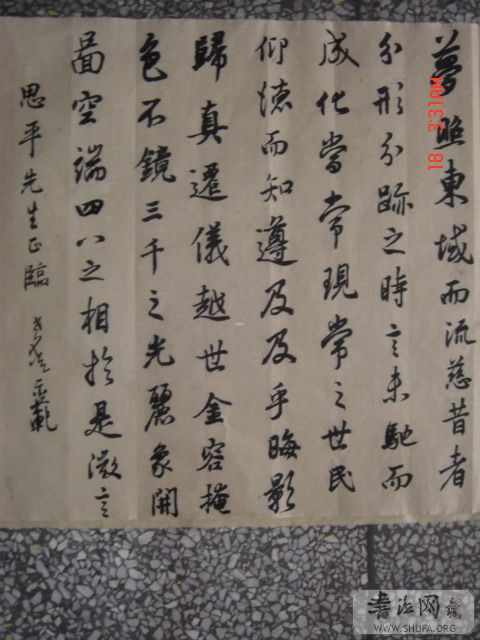 夢照東域而流慈昔者
分形分跡之時言未馳而
成化當常現常之世民
仰德而知遵及及乎晦影
歸真遷儀越世金容掩
色不鏡三千之光麗象開
啚空端四八之相於是微言
思平先生正臨
18 3:31AM
書法网
WWW.SHUFA.ORG